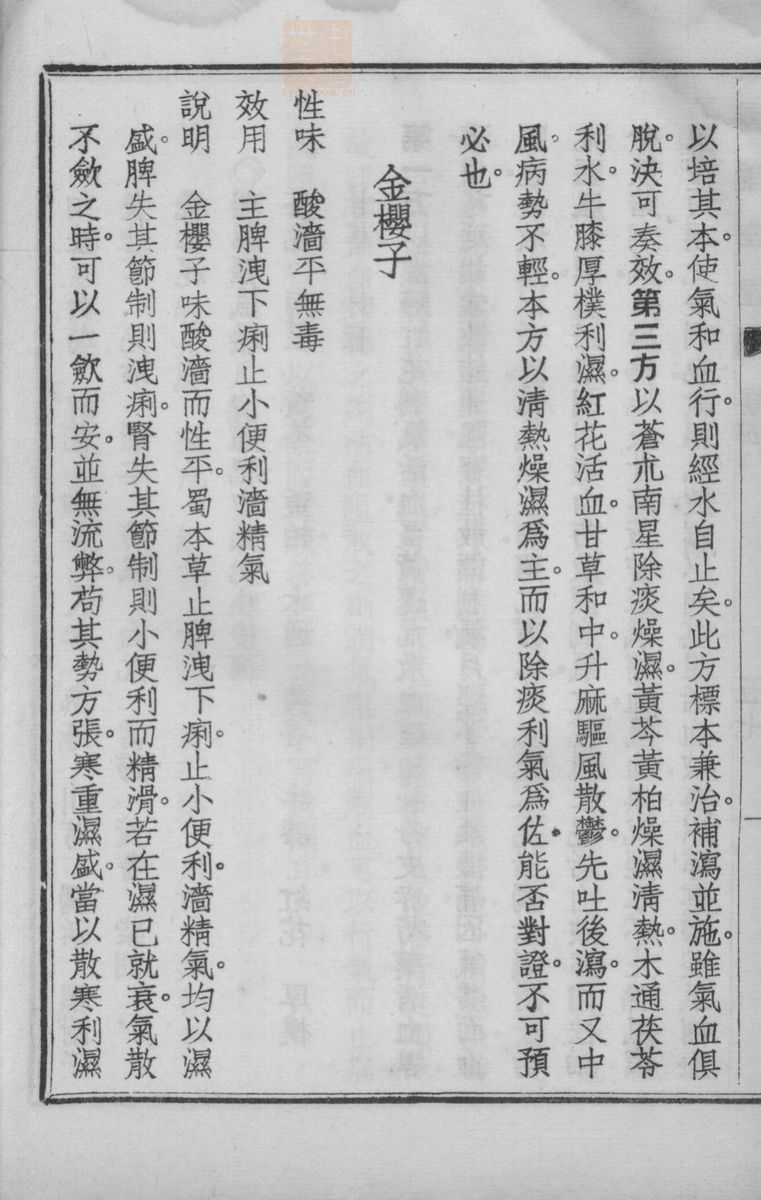 以培其本。使氣和血行。則經水自止矣。此方標本兼治。補瀉並施。雖氣血俱
脫。決可奏效。第三方以蒼朮南星除痰燥濕。黃芩黃柏燥濕清熱。木通茯苓
利水。牛膝厚樸利濕。紅花活血。甘草和中。升麻驅風散鬱。先吐後瀉。而又中
風。病勢不輕。本方以清熱燥濕爲主。而以除痰利氣爲佐。能否對證。不可預
必也。
金櫻子
性味　酸濇平無毒
效用　主脾洩下痢止小便利濇精氣
說明　金櫻子味酸濇而性平。蜀本草止脾洩下痢。止小便利。濇精氣。均以濕
盛。脾失其節制則洩痢。腎失其節制則小便利而精滑。若在濕已就衰。氣散
不斂之時。可以一斂而安。並無流弊。茍其勢方張。寒重濕盛。當以散寒利濕